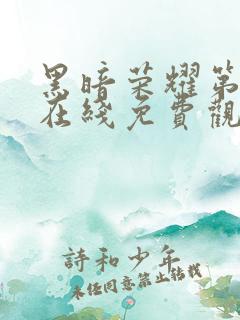 黑暗荣耀第
在线免費觀
詩和少年
未经同意禁止转载